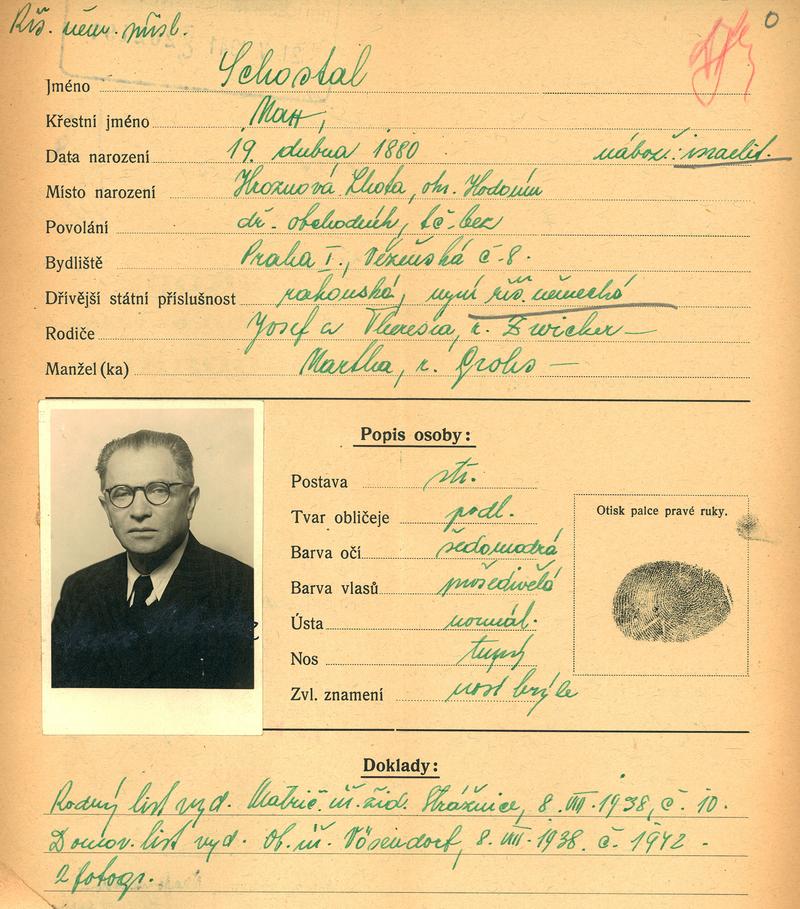 Říš. něm. přísl.
Jméno Schostal
Křestní jméno Max,
Data narození 19. dubna 1880 nábož: israelit.
Místo narození Hroznová Lhota, okr. Hodonín
Povolání dř. obchodník, t.č. bez
Bydliště Praha I., Vězeňská č. 8.
Dřívější státní příslušnost rakouská, nyní říš. německá
Rodiče Josef a Theresia, r. Zwicker —
Manžel (ka) Martha, r. Grohs —
Popis osoby:
Postava stř.
Tvar obličeje podl.
Otisk palce pravé ruky.
Barva očí šedomodrá
Barva vlasů prošedivělá
Ústa normál.
Nos tupý
Zvl. znamení nosí brýle
Doklady:
Rodný list vyd. Matrič. úř. žid. Strážnice, 8. VIII. 1938, č. 10.
Domov. list vyd. Ob. úř. Vösendorf, 8. VIII. 1938. č. 1942 -
2 fotogr.